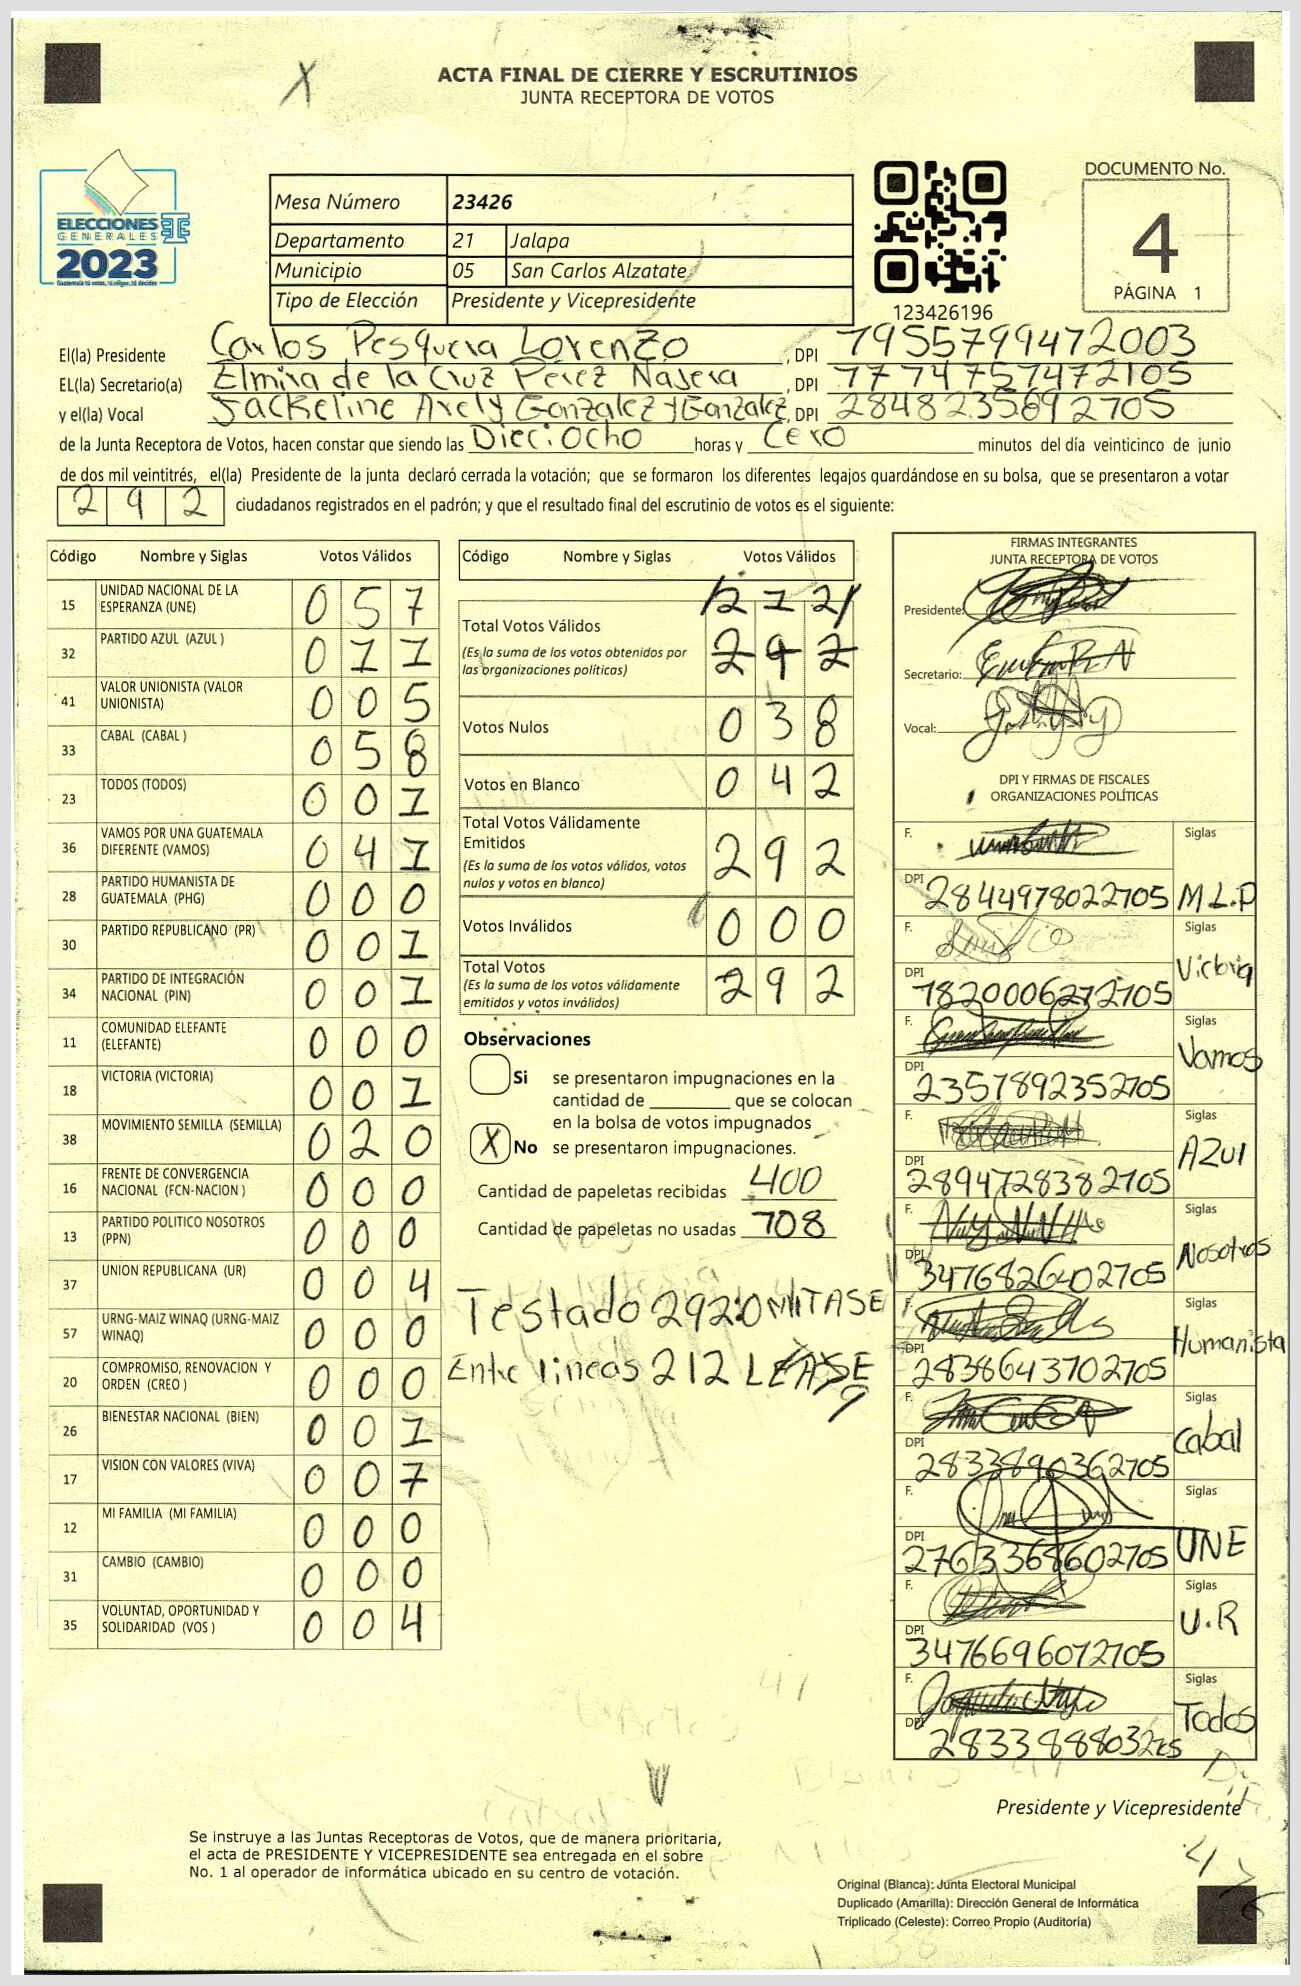 ACTA FINAL DE CIERRE Y ESCRUTINIOS
JUNTA RECEPTORA DE VOTOS
X
ELECCIONES
GENERALES
2023
Guatemala tú votas, tú eliges, tú decides
Mesa Número 23426
Departamento 21 Jalapa
Municipio 05 San Carlos Alzatate
Tipo de Elección Presidente y Vicepresidente
123426196
DOCUMENTO No.
4
PÁGINA 1
El(la) Presidente Carlos Pesquera Lorenzo, DPI 7955799472003
EL(la) Secretario(a) Elmira de la Cruz Pérez Najera, DPI 7774757472105
y el(la) Vocal Jackeline Arely Gonzalez y Gonzalez, DPI 2848235692705
de la Junta Receptora de Votos, hacen constar que siendo las Dieciocho horas y Cero minutos del día veinticinco de junio
de dos mil veintitrés, el(la) Presidente de la junta declaró cerrada la votación; que se formaron los diferentes legajos guardándose en su bolsa, que se presentaron a votar
292 ciudadanos registrados en el padrón; y que el resultado final del escrutinio de votos es el siguiente:
Código Nombre y Siglas Votos Válidos
15 UNIDAD NACIONAL DE LA ESPERANZA (UNE) 057
32 PARTIDO AZUL (AZUL ) 011
41 VALOR UNIONISTA (VALOR UNIONISTA) 005
33 CABAL (CABAL ) 058
23 TODOS (TODOS) 001
36 VAMOS POR UNA GUATEMALA DIFERENTE (VAMOS) 041
28 PARTIDO HUMANISTA DE GUATEMALA (PHG) 000
30 PARTIDO REPUBLICANO (PR) 001
34 PARTIDO DE INTEGRACIÓN NACIONAL (PIN) 001
11 COMUNIDAD ELEFANTE (ELEFANTE) 000
18 VICTORIA (VICTORIA) 001
38 MOVIMIENTO SEMILLA (SEMILLA) 020
16 FRENTE DE CONVERGENCIA NACIONAL (FCN-NACION ) 000
13 PARTIDO POLITICO NOSOTROS (PPN) 000
37 UNION REPUBLICANA (UR) 004
57 URNG-MAIZ WINAQ (URNG-MAIZ WINAQ) 000
20 COMPROMISO, RENOVACION Y ORDEN (CREO ) 000
26 BIENESTAR NACIONAL (BIEN) 001
17 VISION CON VALORES (VIVA) 007
12 MI FAMILIA (MI FAMILIA) 000
31 CAMBIO (CAMBIO) 000
35 VOLUNTAD, OPORTUNIDAD Y SOLIDARIDAD (VOS ) 004
Código Nombre y Siglas Votos Válidos
/212/
Total Votos Válidos 292
(Es la suma de los votos obtenidos por
las organizaciones políticas)
Votos Nulos 038
Votos en Blanco 042
Total Votos Válidamente
Emitidos 292
(Es la suma de los votos válidos, votos
nulos y votos en blanco)
Votos Inválidos 000
Total Votos 292
(Es la suma de los votos válidamente
emitidos y votos inválidos)
Observaciones
Si se presentaron impugnaciones en la
cantidad de ________ que se colocan
en la bolsa de votos impugnados
X No se presentaron impugnaciones.
Cantidad de papeletas recibidas 400
Cantidad de papeletas no usadas 108
Testado 292:OMITASE
Entre lineas 212 LEASE
FIRMAS INTEGRANTES
JUNTA RECEPTORA DE VOTOS
Presidente:
Secretario:
Vocal:
DPI Y FIRMAS DE FISCALES
ORGANIZACIONES POLÍTICAS
F. Siglas
DPI 2844978022705 M.L.P
F. Siglas
DPI 1820006272705 Victoria
F. Siglas
DPI 2357892352705 Vamos
F. Siglas
DPI 2894728382705 AZul
F. Siglas
DPI 3476826402705 Nosotros
F. Siglas
DPI 2838643702705 Humanista
F. Siglas
DPI 2833890362705 Cabal
F. Siglas
DPI 2763368602705 UNE
F. Siglas
DPI 3476696072705 U.R
F. Siglas
DPI Todos
Presidente y Vicepresidente
Se instruye a las Juntas Receptoras de Votos, que de manera prioritaria,
el acta de PRESIDENTE Y VICEPRESIDENTE sea entregada en el sobre
No. 1 al operador de informática ubicado en su centro de votación.
Original (Blanca): Junta Electoral Municipal
Duplicado (Amarilla): Dirección General de Informática
Triplicado (Celeste): Correo Propio (Auditoría)